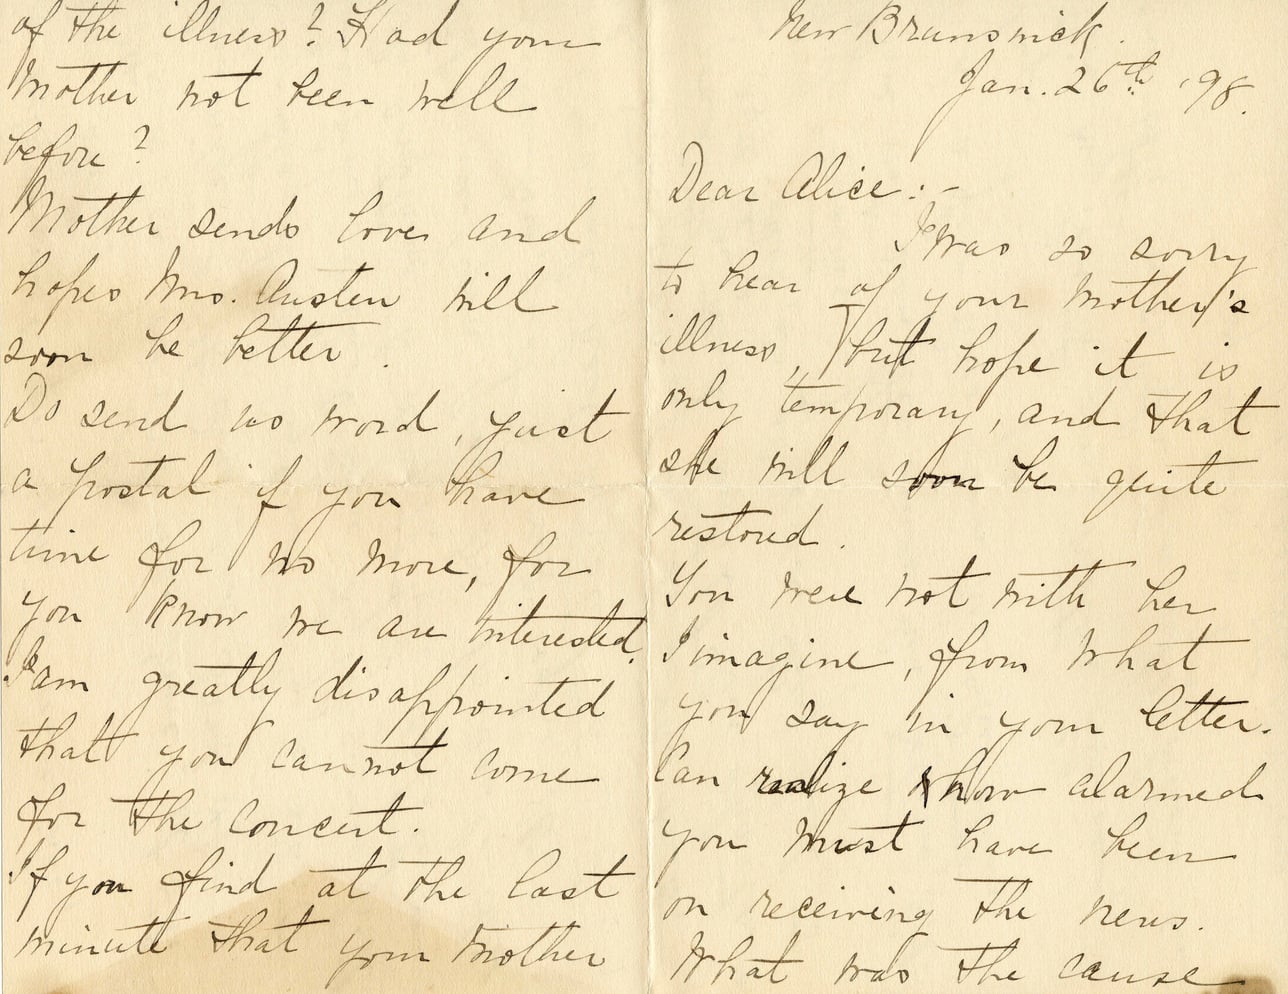 New Brunswick.
Jan. 26th '98.
Dear Alice:-
I was so sorry
to hear of your Mother's
illness, but hope it is
only temporary, and that
she will soon be quite
restored.
You were not with her
I imagine, from what
you say in your letter.
Can realize how alarmed
you must have been
on receiving the news.
What was the cause
of the illness? Had your
Mother not been well
before?
Mother sends love and
hopes Mrs. Austen will
soon be better.
Do send us word, just
a postal if you have
time for no more, for
you know we are interested.
I am greatly disappointed
that you cannot come
for the concert.
If you find at the last
minute that your Mother